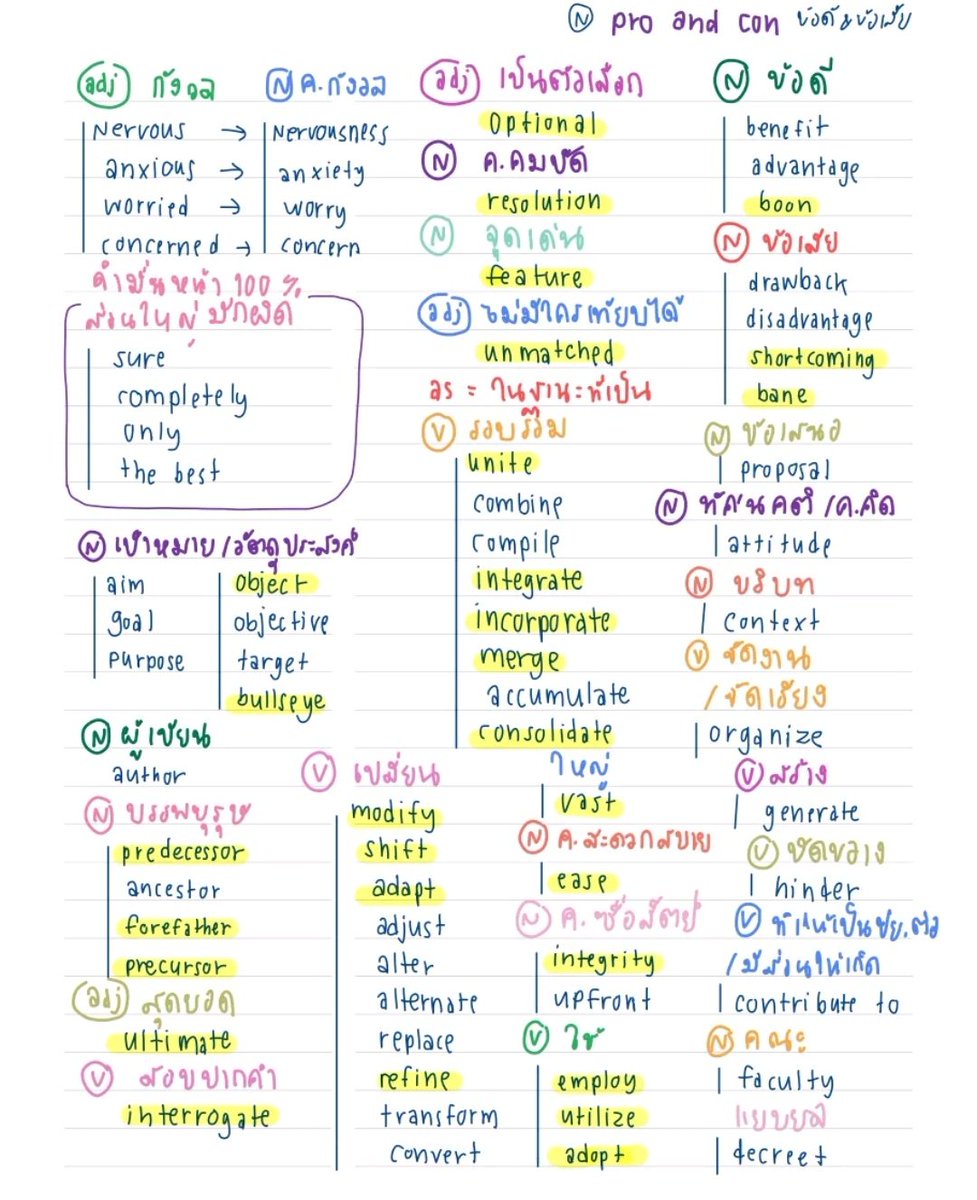 N pro and con ข้อดี & ข้อเสีย
adj กังวล
Nervous →
anxious →
worried →
concerned →
N ค.กังวล
Nervousness
anxiety
worry
concern
คำมั่นหน้า 100 %
ส่วนใหญ่มักผิด
sure
completely
only
the best
N เป้าหมาย/วัตถุประสงค์
aim
goal
purpose
object
objective
target
bullseye
N ผู้เขียน
author
N บรรพบุรุษ
predecessor
ancestor
forefather
precursor
adj สุดยอด
ultimate
V สอบปากคำ
interrogate
adj เป็นตัวเลือก
Optional
N ค.คมชัด
resolution
N จุดเด่น
feature
adj ไม่มีใครเทียบได้
unmatched
as = ในฐานะที่เป็น
V รวบรวม
unite
combine
compile
integrate
incorporate
merge
accumulate
consolidate
V เปลี่ยน
modify
shift
adapt
adjust
alter
alternate
replace
refine
transform
convert
ใหญ่
vast
N ค.สะดวกสบาย
ease
N ค.ซื่อสัตย์
integrity
upfront
V ใช้
employ
utilize
adopt
N ข้อดี
benefit
advantage
boon
N ข้อเสีย
drawback
disadvantage
shortcoming
bane
N ข้อเสนอ
proposal
N ทัศนคติ /ค.คิด
attitude
N บริบท
context
V จัดงาน
/จัดเรียง
organize
V สร้าง
generate
V ขัดขวาง
hinder
V
/มีส่วนให้เกิด
contribute to
N คณะ
faculty
แยบยล